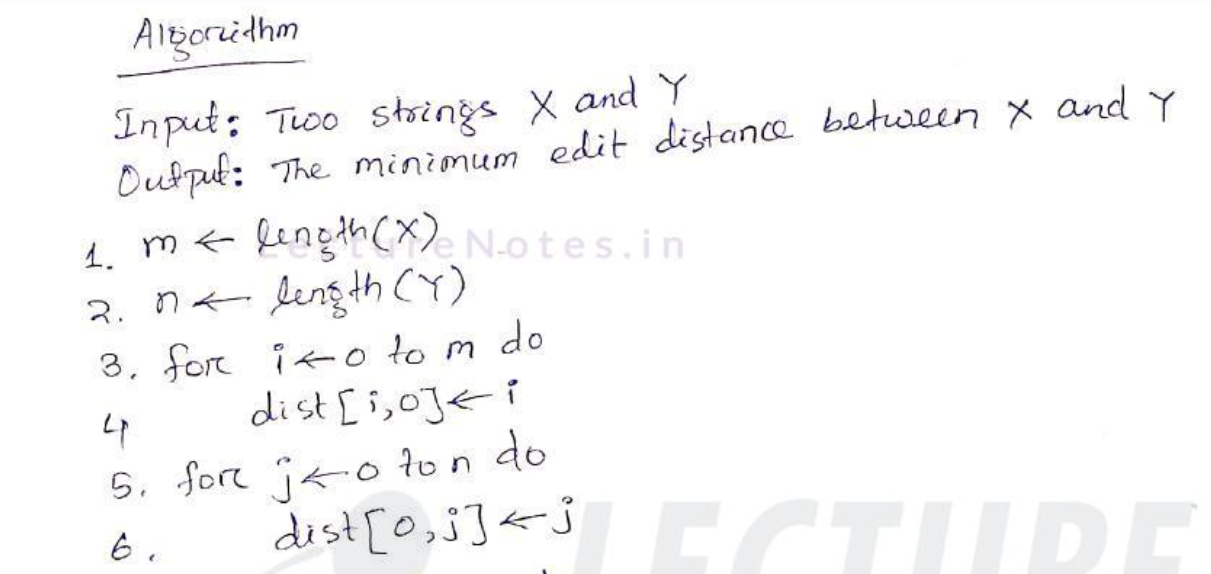 Algorithm
Input: Two strings X and Y
Output: The minimum edit distance between X and Y
1. m ← length(X)
LectureNotes.in
2. n ← length(Y)
3. for i ← 0 to m do
4 dist[i,0] ← i
5. for j ← 0 to n do
6. dist[0,j] ← j
LECTURE